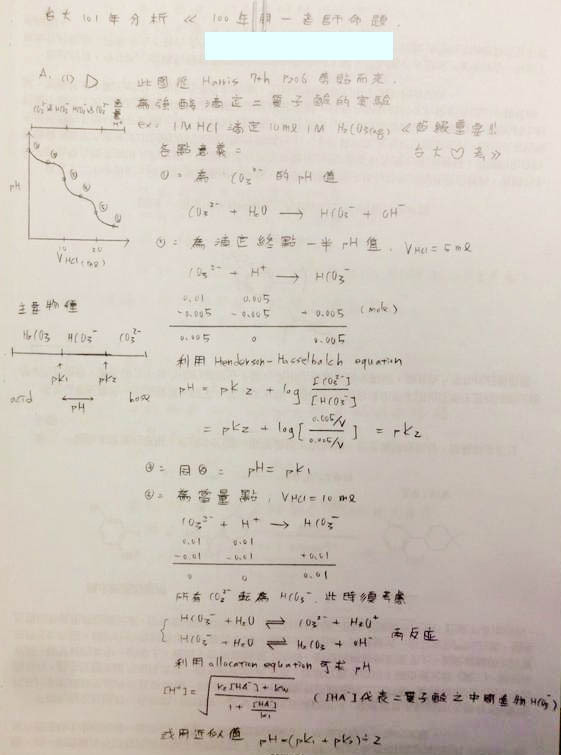 台大 101 年分析 《 100 年 一 老師命題.
A. (1) D 此圖從 Harris 7th P206 剪貼而來.
為強酸滴定二質子鹼的實驗
ex: 1M HCl 滴定 10 ml 1M (aq) 《超級重要!!
台大♡考》
pH
10 20
V HCl (ml)
各點意義 =
①= 為 CO3²⁻ 的 pH 值
CO3²⁻ + H2O → HCO3⁻ + OH⁻
= 為滴定終點一半 pH 值, V HCl = 5 ml
CO3²⁻ + H⁺ → HCO3⁻
0.01 0.005
-0.005 -0.005 +0.005 (mole)
0.005 0 0.005
主要物種
H2CO3 HCO3⁻ CO3²⁻
pK1 pK2
acid ↔ base
pH
利用 Henderson-Hasselbalch equation
pH = pK2 + log [CO3²⁻]/[HCO3⁻]
= pK2 + log[ (0.005/V)/(0.005/V) ] = pK2
= 同 = pH = pK1
= 為當量點, V HCl = 10 ml
CO3²⁻ + H⁺ → HCO3⁻
0.01 0.01
-0.01 -0.01 +0.01
0 0 0.01
所有 CO3²⁻ 轉為 HCO3⁻, 此時須考慮
{ HCO3⁻ + H2O ⇌ CO3²⁻ + H3O⁺
HCO3⁻ + H2O ⇌ H2CO3 + OH⁻ 兩反應
利用 allocation equation 可求 pH
[H⁺] = √( (K2[HA⁻] + Kw) / (1 + [HA⁻]/K1) ) ([HA⁻] 代表二質子酸之中間產物 HCO3⁻)
或用近似值 pH = (pK1 + pK2) ÷ 2